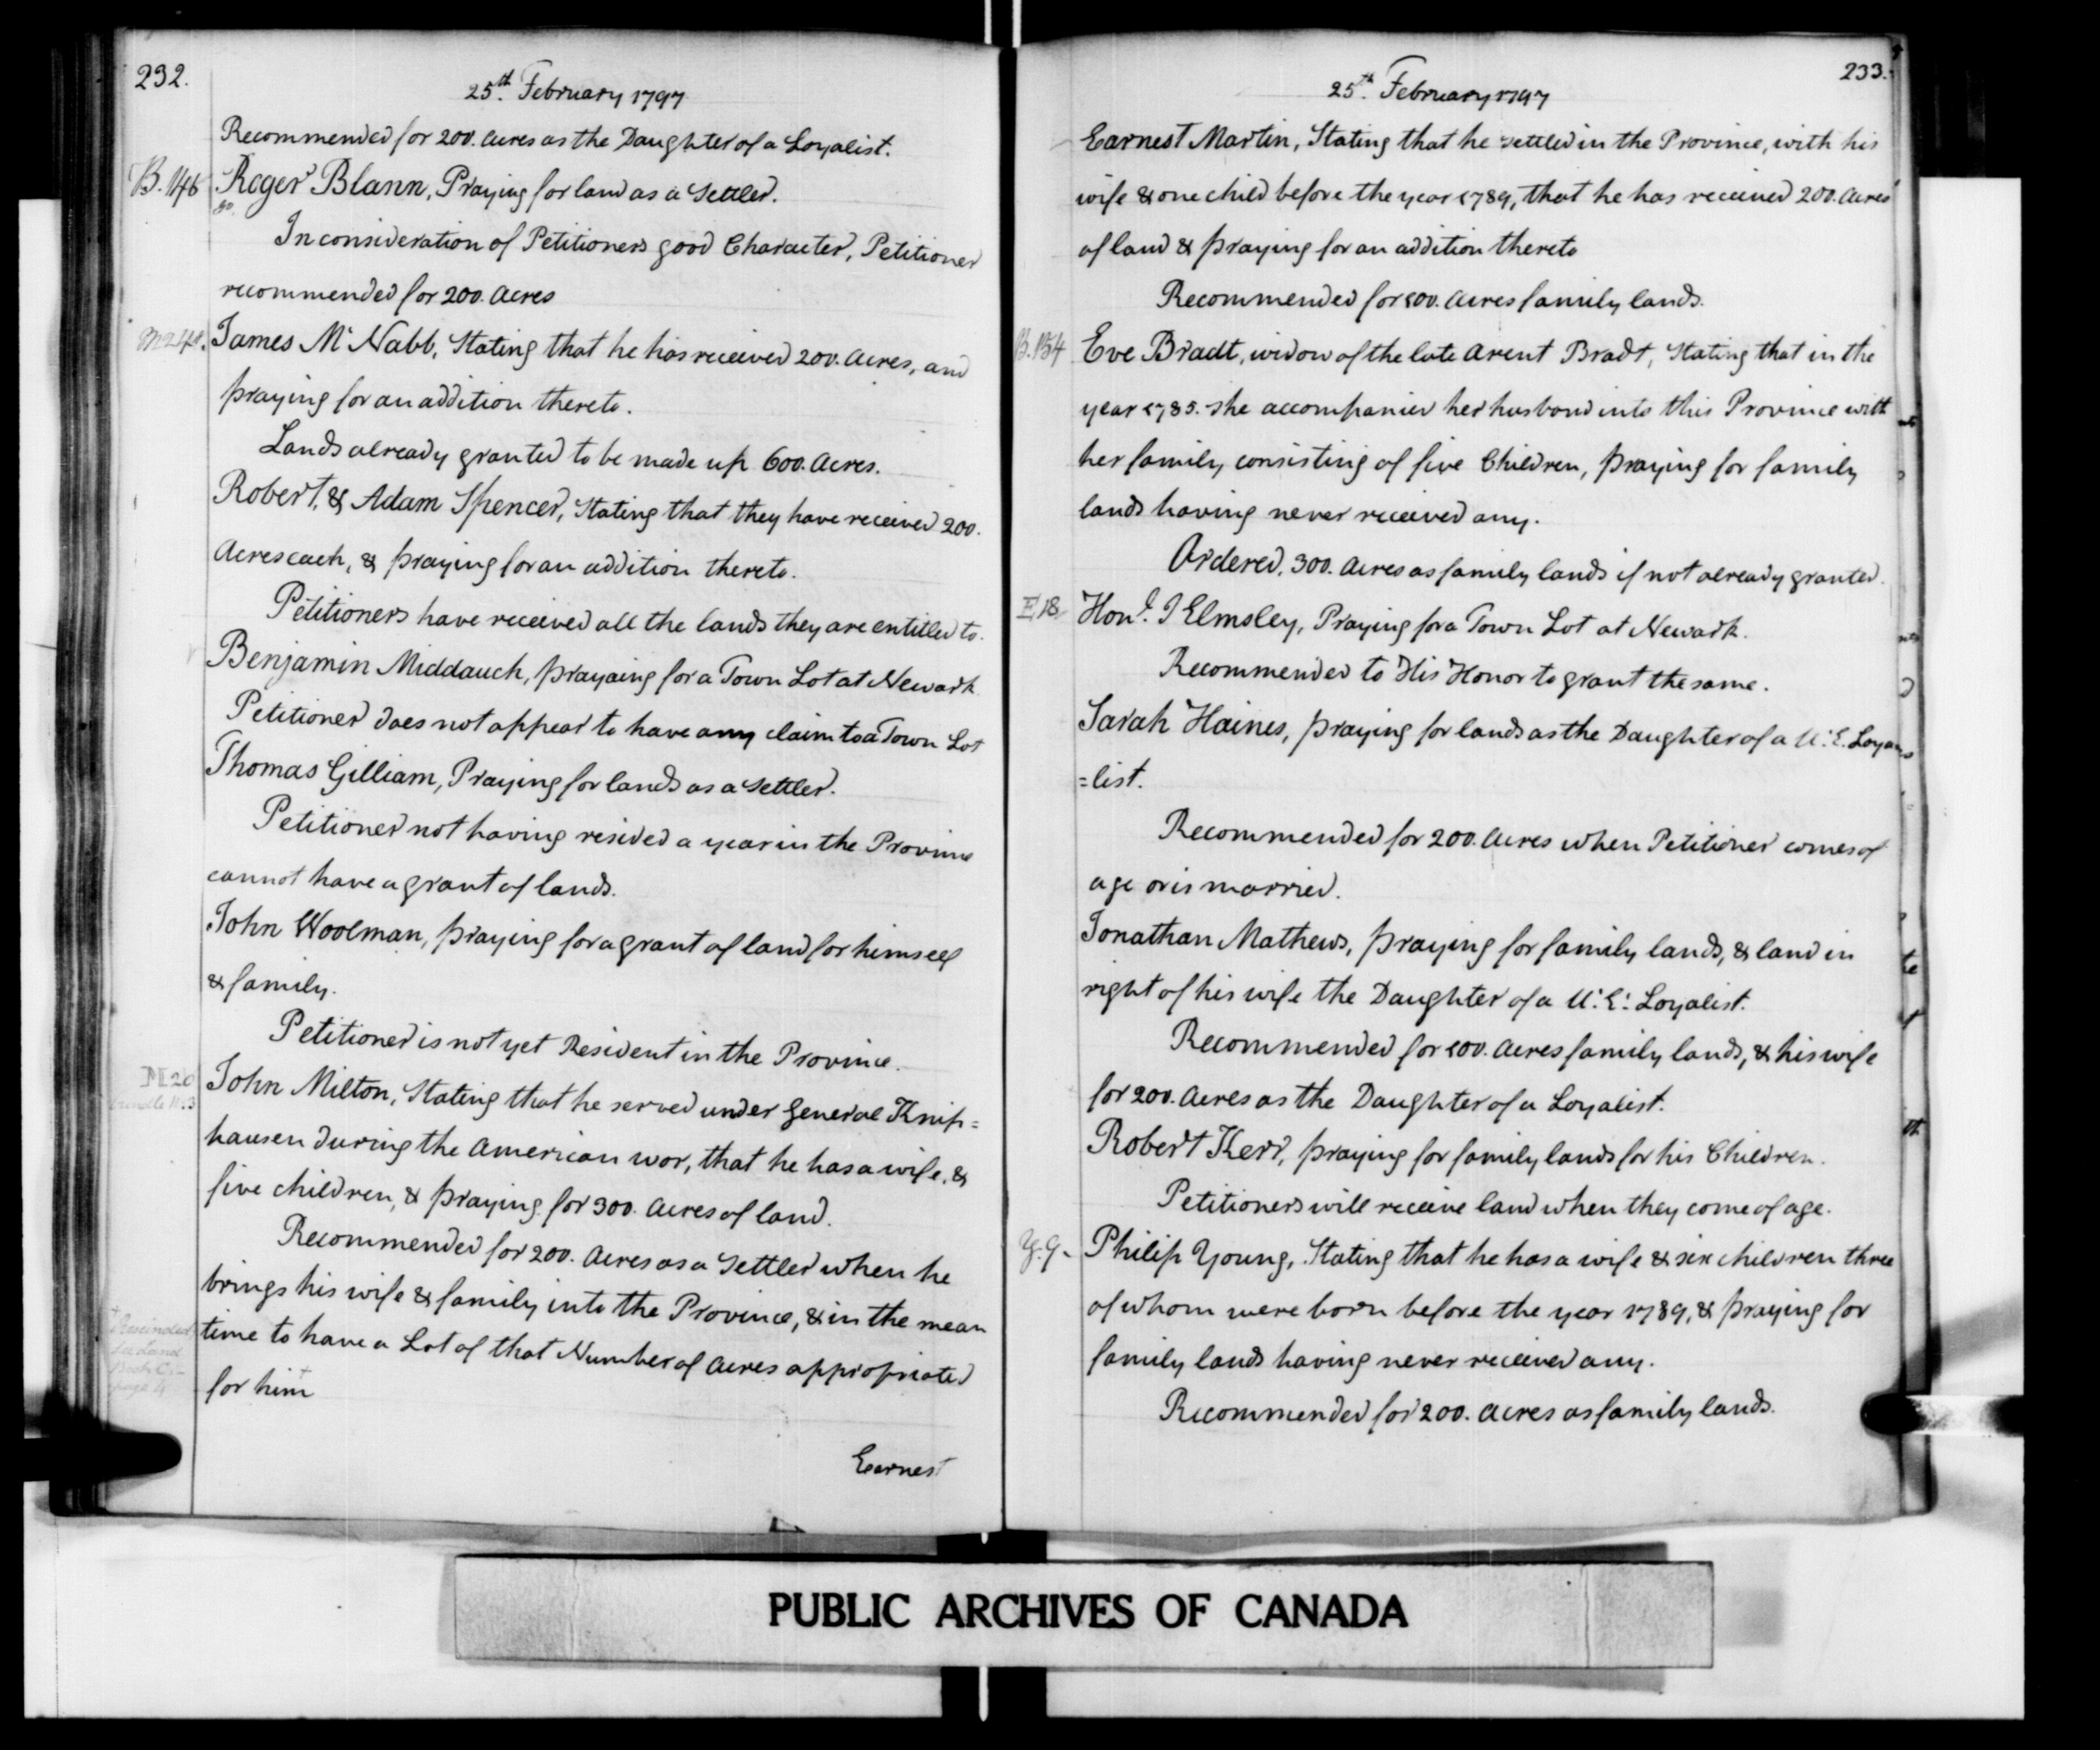 232.
25th. February 1797
Recommended for 200. Acres as the Daughter of a Loyalist.
B. 146 Roger Blann, Praying for land as a Settler.
In consideration of Petitioners good Character, Petitioner
recommended for 200. Acres
James McNabb, Stating that he has received 200. Acres, and
praying for an addition thereto.
Lands already granted to be made up 600. Acres.
Robert, & Adam Spencer, Stating that they have received 200.
Acres each, & praying for an addition thereto.
Petitioners have received all the lands they are entitled to.
Benjamin Middauch, prayaing for a Town Lot at Newark
Petitioner does not appear to have any claim to a Town Lot
Thomas Gilliam, Praying for lands as a Settler.
Petitioner not having resided a year in the Province
cannot have a grant of lands.
John Woolman, praying for a grant of land for himself
& family.
Petitioner is not yet Resident in the Province.
M 20 John Milton, Stating that he served under General Knip=
hausen during the American war, that he has a wife, &
five children, & praying for 300. Acres of land.
Recommended for 200. Acres as a Settler when he
brings his wife & family into the Province, & in the mean
time to have a Lot of that Number of Acres appropriated
for him
+ Rescinded
see Land
Book C.
page 4
Earnest
233.
25th. February 1797
Earnest Martin, Stating that he settled in the Province, with his
wife & one child before the year 1789, that he has received 200. Acres
of land & praying for an addition thereto
Recommended for 100. Acres family lands.
Eve Bradt, widow of the late Arent Bradt, Stating that in the
year 1785. she accompanied her husband into this Province with
her family consisting of five Children, praying for family
lands having never received any.
Ordered, 300. Acres as family lands if not already granted.
E 18 Hon.l J Elmsley, Praying for a Town Lot at Newark.
Recommended to His Honor to grant the same.
Sarah Haines, praying for lands as the Daughter of a U. E. Loya
=list.
Recommended for 200. Acres when Petitioner comes of
age or is married.
Jonathan Mathews, praying for family lands, & land in
right of his wife the Daughter of a U. E. Loyalist.
Recommended for 100. Acres family lands, & his wife
for 200. Acres as the Daughter of a Loyalist.
Robert Kerr, praying for family lands for his Children.
Petitioners will receive land when they come of age.
Y. 9. Philip Young, Stating that he has a wife & six children three
of whom were born before the year 1789, & praying for
family lands having never received any.
Recommended for 200. Acres as family lands.
PUBLIC ARCHIVES OF CANADA